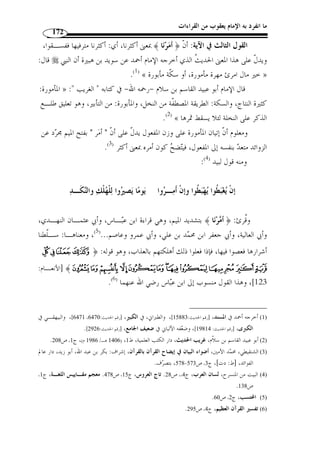 ما انفرد به الإمام يعقوب من القراءات
172
القول الثالث في الآية: أنّ ﴿ أَمَرْنَا ﴾ بمعنى أكثرنا، أي: أكثرنا مترفيها ففســقوا،
ويدلّ على هذا المعنى الحديث الذي أخرجه الإمام أحمد عن سويد بن هبيرة أن النبي ﷺ قال:
« خير مال امرئ مهرة مأمورة، أو سكّة مأبورة » (1).
قال الإمام أبو عبيد القاسم بن سلام -رحمه الله- في كتابه " الغريب ": « المأمورة:
كثيرة النتاج، والسكة: الطريقة المصطفّة من النخل، والمأبورة: من التأبير، وهو تعليق طلــع
الذكر على النخلة لئلا يسقط ثمرها » (2).
ومعلوم أنّ إتيان المأمورة على وزن المفعول يدلّ على أنّ "أمَر" بفتح الميم مجرّد عن
الزوائد متعدّ بنفسه إلى المفعول، فيتّضح كون أمره بمعنى أكثر (3).
ومنه قول لبيد (4):
إِنْ يُغْبَطُوا يُهْبَطُوا وَإِنْ أَمِــرُوا يَومًا يَصِيرُوا لِلْهُلْكِ وَالنَّكَــدِ
وقُرئ: ﴿ أَمَّرْنَا ﴾ بتشديد الميم، وهي قراءة ابن عبّــاس، وأبي عثمــان النهــدي،
وأبي العالية، وأبي جعفر ابن محمّد بن علي، وأبي عمرو وعاصم...(5)، ومعناهــا: ســلّطنا
أشرارها فعصوا فيها، فإذا فعلوا ذلك أهلكتهم بالعذاب، وهو قوله: ﴿ وَكَذَٰلِكَ جَعَلْنَا فِي كُلِّ
قَرْيَةٍ أَكَابِرَ مُجْرِمِيهَا لِيَمْكُرُوا فِيهَا وَمَا يَمْكُرُونَ إِلَّا بِأَنفُسِهِمْ وَمَا يَشْعُرُونَ ﴾ [الأنعــام:
123]، وهذا القول منسوب إلى ابن عبّاس رضي الله عنهما (6).
(1) أخرجه أحمد في المسند، [رقم الحديث: 15883]، والطبراني، في الكبير، [رقم الحديث: 6470، 6471]، والبيهقــي في
الكبرى، [رقم الحديث: 19814]، وضعّفه الألباني في ضعيف الجامع، [رقم الحديث: 2926].
(2) أبو عبيد القاسم بن سلّام، غريب الحديث، دار الكتب العلمية، ط1، 1406هـ، 1986م، ج1، ص208.
(3) الشنقيطي، محمّد الأمين، أضواء البيان في إيضاح القرآن بالقرآن، إشراف: بكر بن عبد الله أبو زيد، دار عالم
الفوائد، [ط: د.ت]، ج3، ص573-578، بتصرّف.
(4) البيت من المنسرح، لسان العرب، ج4، ص28. تاج العروس، ج1، ص478. معجم مقــاييس اللغــة، ج1،
ص138.
(5) المحتسب، ج2، ص60.
(6) تفسير القرآن العظيم، ج4، ص295.